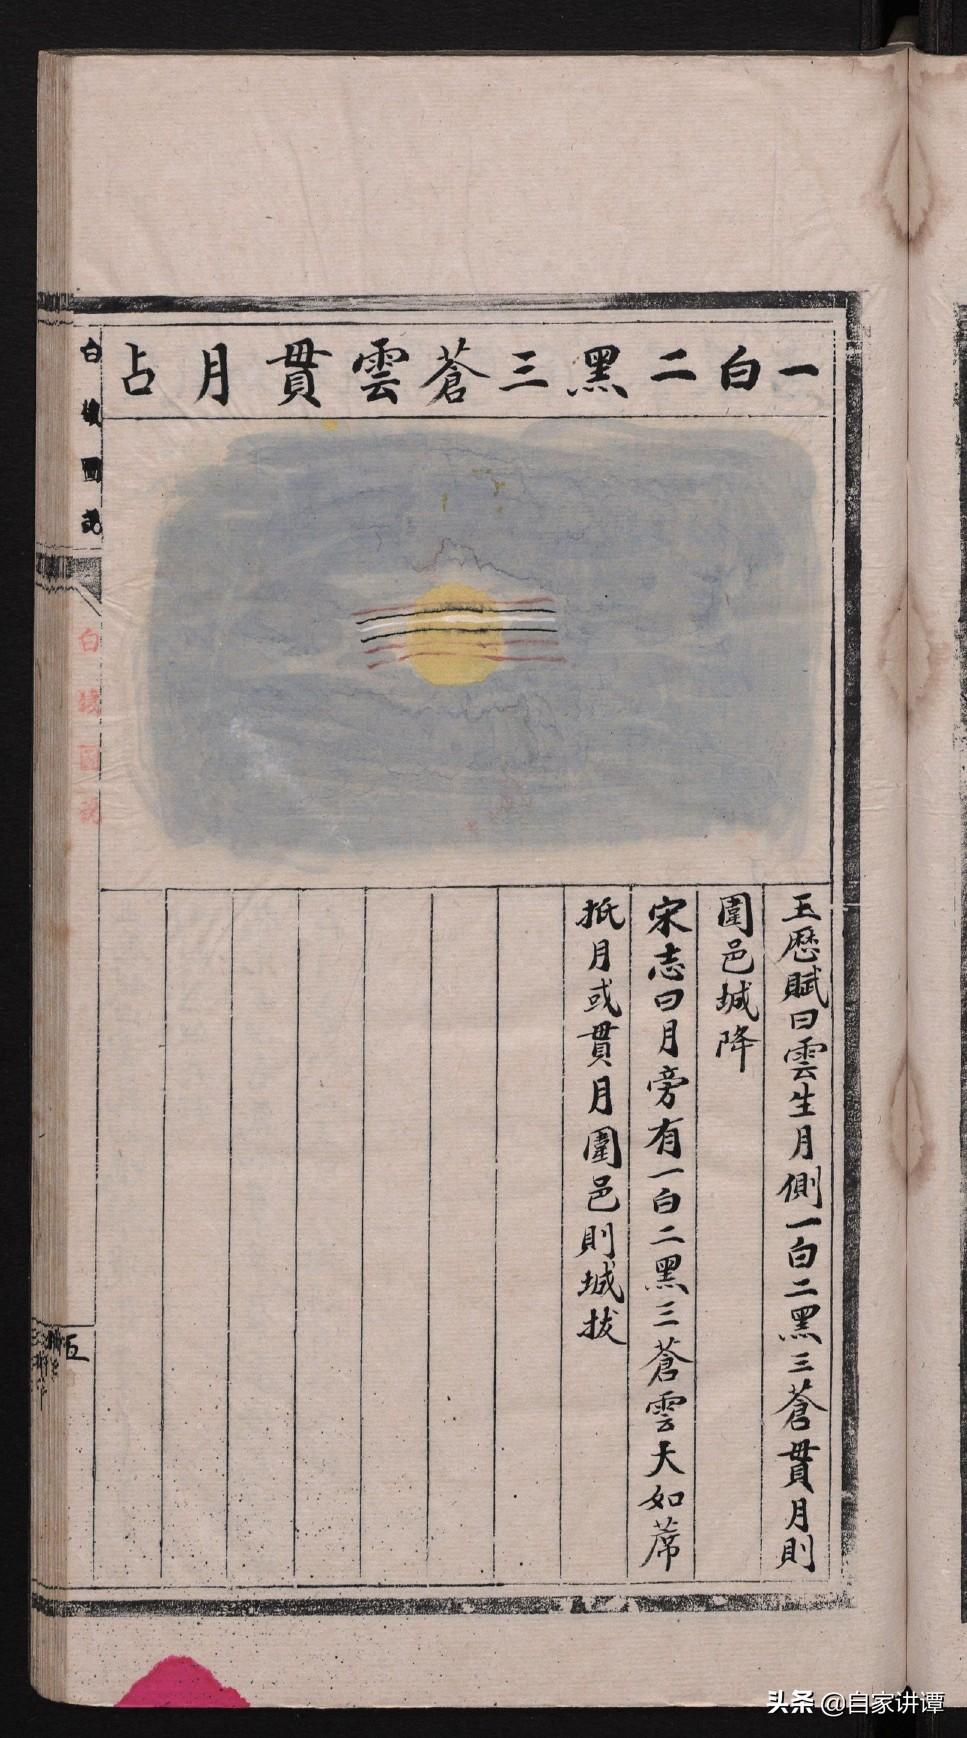 一白二黑三蒼雲貫月占
玉曆賦曰雲生月側一白二黑三蒼貫月則
圍邑城降
宋志曰月旁有一白二黑三蒼雲大如蓆
抵月或貫月圍邑則城拔
白猿圖說
白猿圖說
五
头条 @自家讲谭